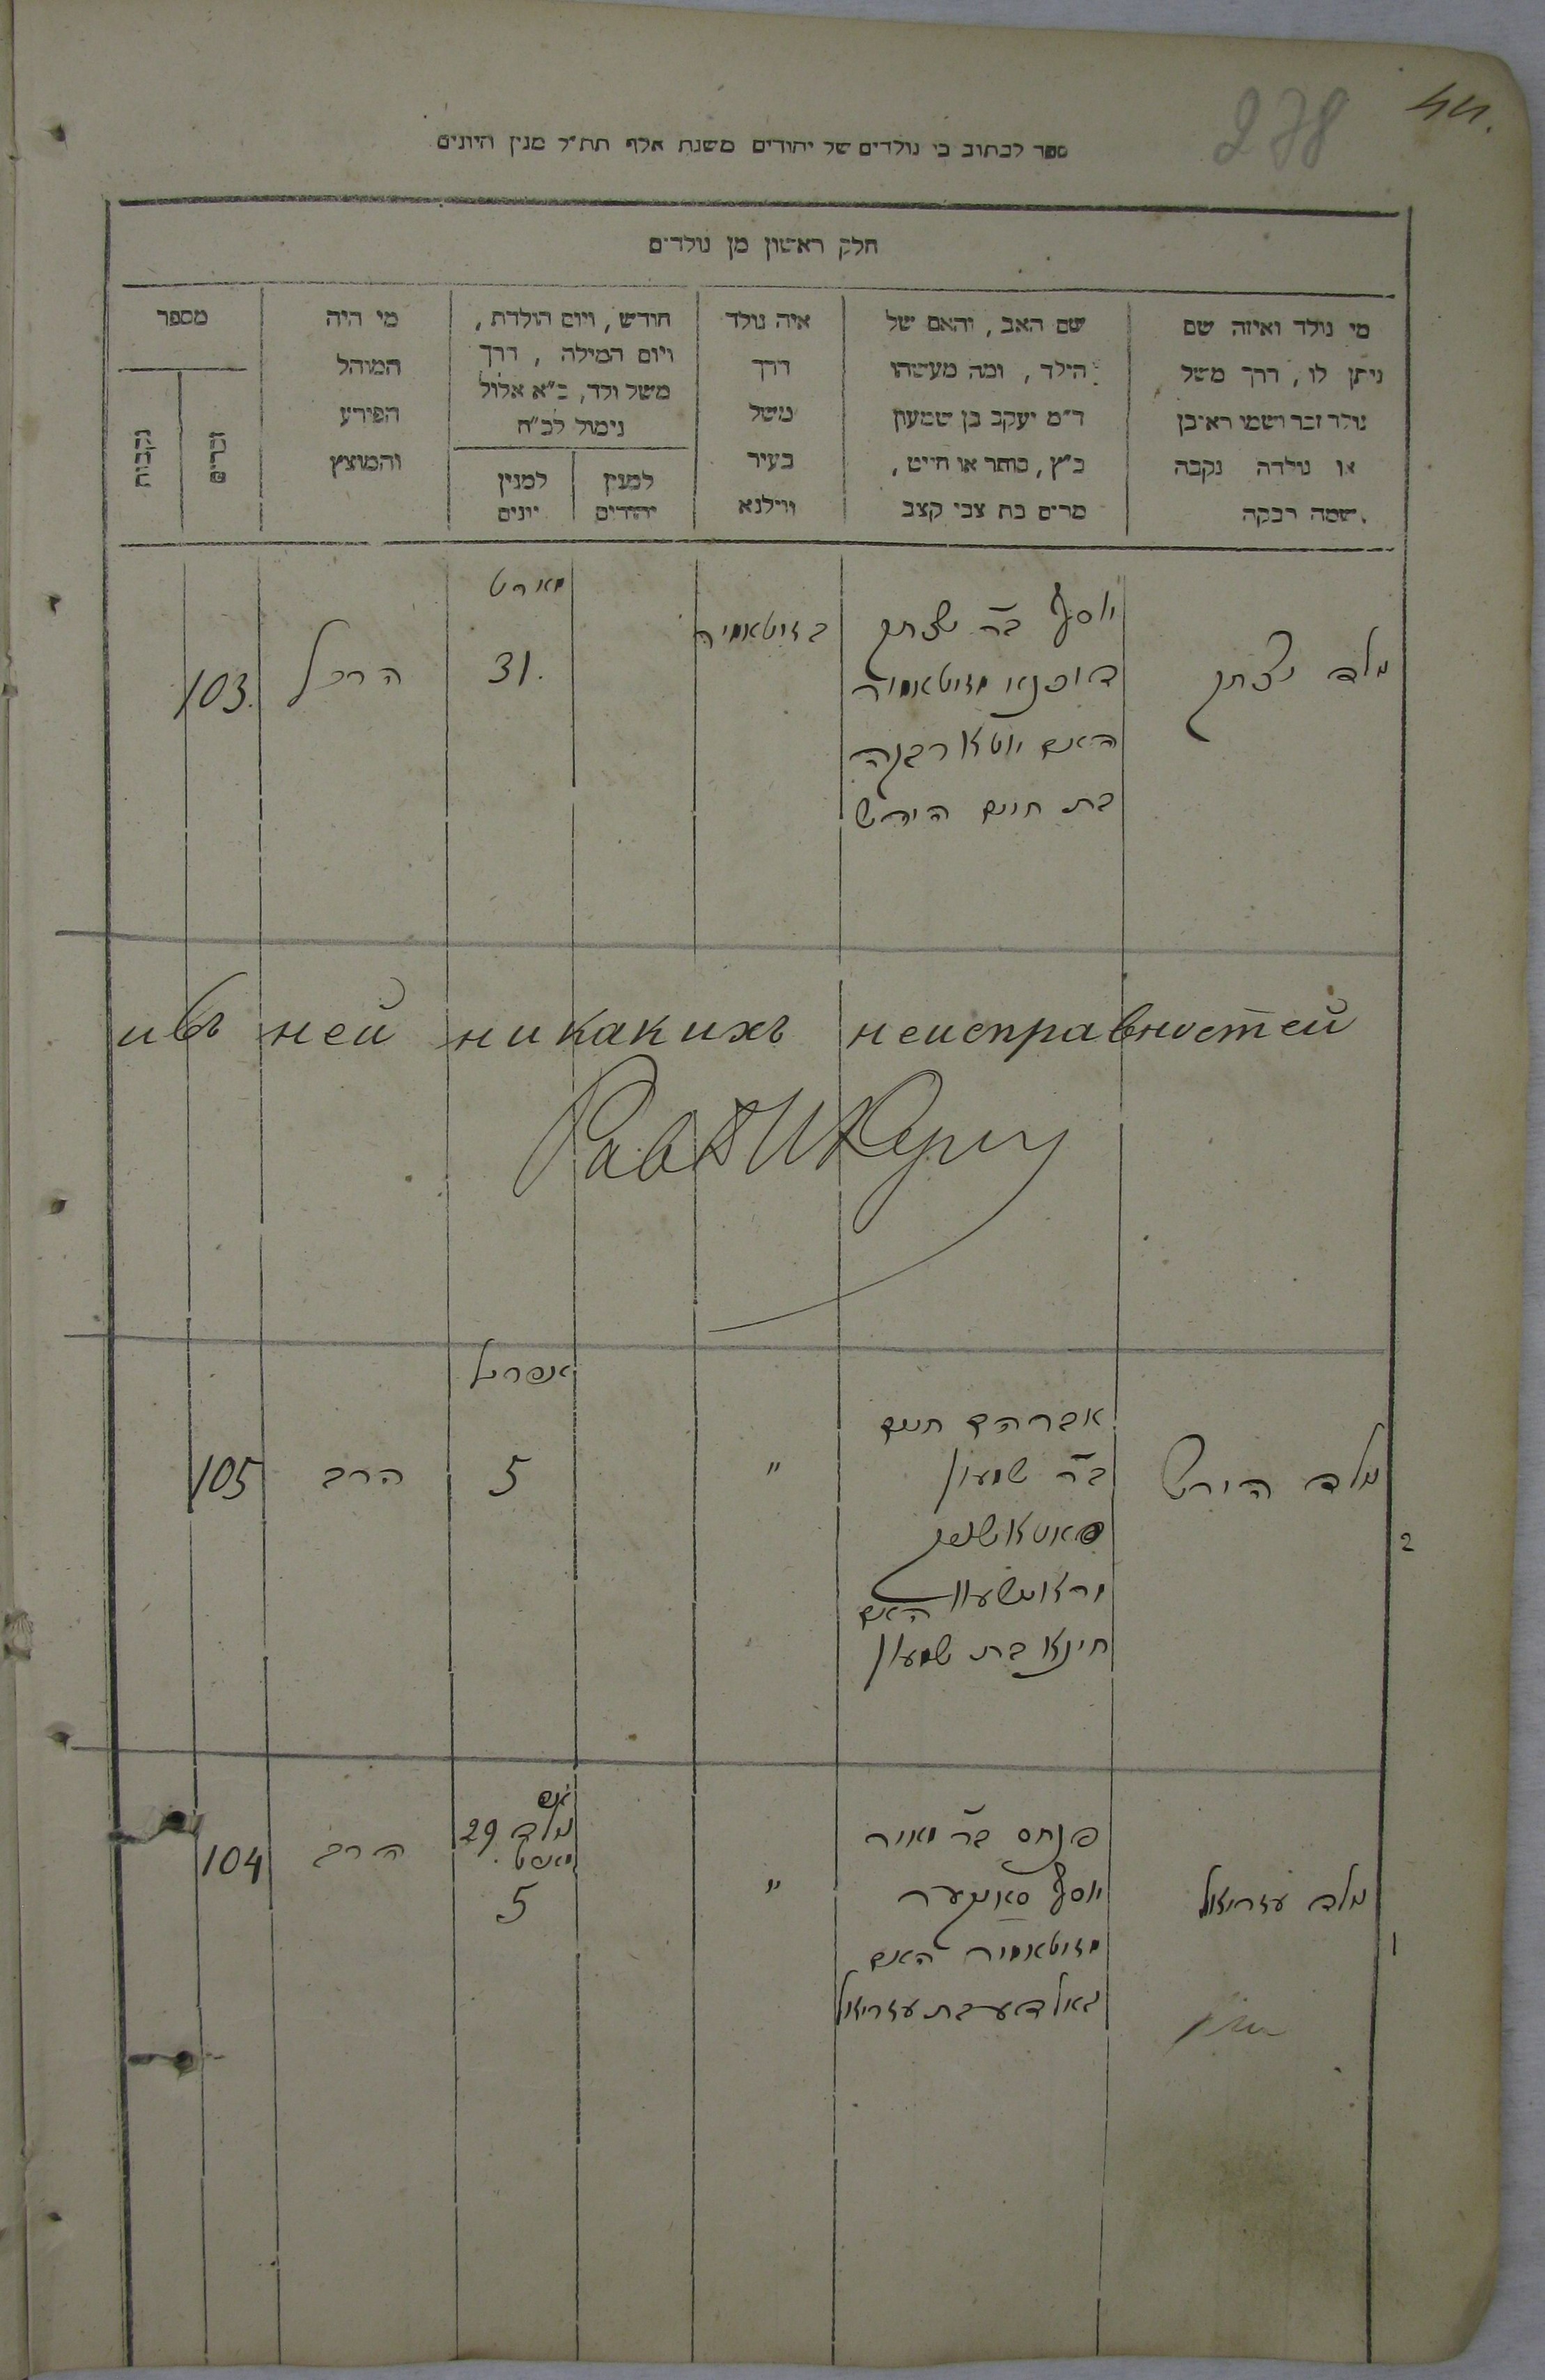 278
44.
ספר לכתוב בו נולדים של יהודים משנת אלף תת״ל מנין היונים
חלק ראשון מן נולדים
מי נולד ואיזה שם
ניתן לו, דרך משל
נולד זכר ושמו ראובן
או נולדה נקבה
שמה רבקה.
שם האב, והאם של
הילד, ומה מעשהו
ד״מ יעקב בן שמעון
כ״ץ, סוחר או חייט,
מרים בת צבי קצב
איה נולד
דרך
משל
בעיר
ווילנא
חודש, ויום הולדת,
ויום המילה, דרך
משל ולד, כ״א אלול
נימול לכ״ח
למנין
יהודים
למנין
יונים
מי היה
המוהל
הפורע
והמוצץ
מספר
זכרים
נקבות
נולד יצחק
יוסף בר יצחק
דובנאו מזיטאמיר
האם יוטא רבקה
בת חיים הירש
בזיטאמיר
מארט
31.
הרב
103.
и въ ней никакихъ неисправностей
נולד הירש
אברהם חיים
בר שמעון
האם
חינא בת שמעון
"
אפריל
5
הרב
105
2
נולד עזריאל
פנחס בר מאיר
יוסף
מזיטאמיר האם
גאלדע בת עזריאל
"
נולד 29
מארט
5
הרב
104
1